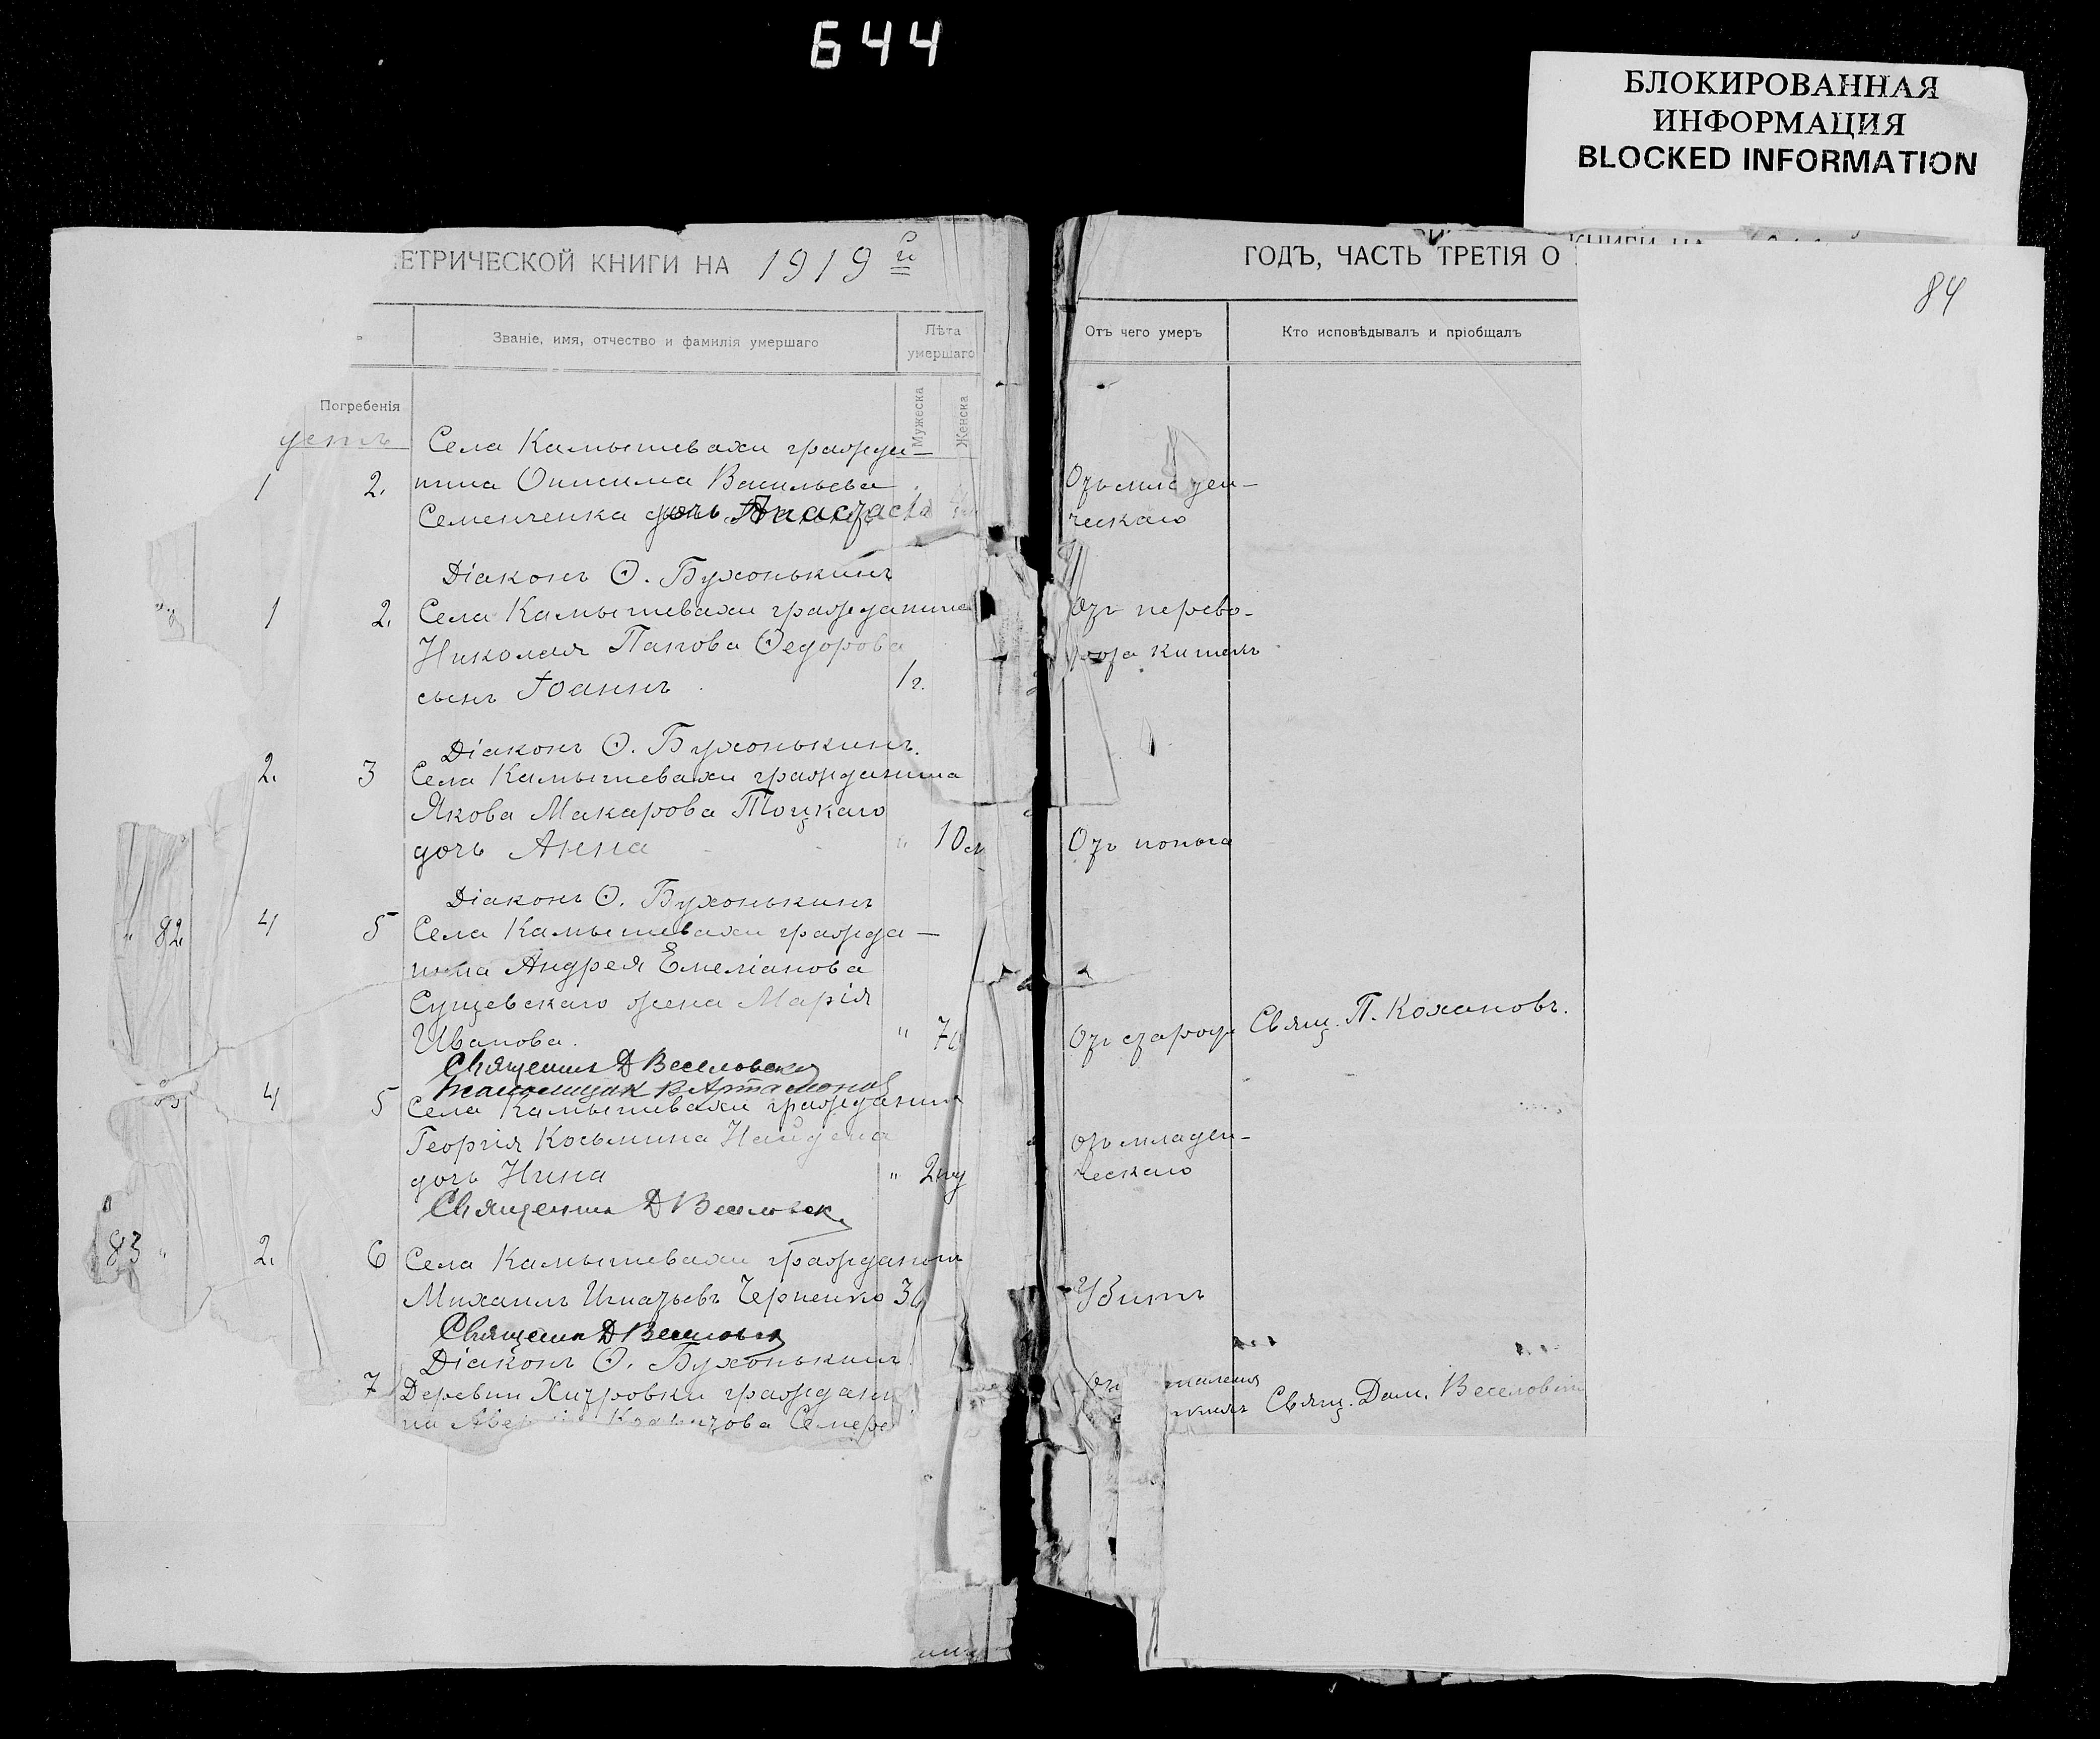 644
БЛОКИРОВАННАЯ
ИНФОРМАЦИЯ
BLOCKED INFORMATION
ЕТРИЧЕСКОЙ КНИГИ НА 1919 й
ГОДЪ, ЧАСТЬ ТРЕТІЯ О
84
Званіе, имя, отчество и фамилія умершаго
Лѣта
умершаго
Отъ чего умеръ
Кто исповѣдывалъ и пріобщалъ
Погребенія
Мужеска
Женска
Села Камышевахи гражда-
1 2. нина Онисима Васильева
Семенченка дочь Анастасія
Отъ младен-
ческаго
Діаконъ Ѳ. Бухонькинъ
1 2. Села Камышевахи гражданина
Николая Панова Ѳедорова
сынъ Іоаннъ 1г.
Отъ перево-
рота кишекъ
Діаконъ Ѳ. Бухонькинъ.
2. 3 Села Камышевахи гражданина
Якова Макарова Тоцкаго
дочь Анна " 10м
Отъ поноса
Діаконъ Ѳ. Бухонькинъ
" 82 4 5 Села Камышевахи гражда-
нина Андрея Емеліанова
Сущевскаго жена Марія
Иванова. "
Отъ старости Свящ. П. Кохановъ.
Священникъ Д Веселовскій
Псаломщик В Артамонов
4 5 Села Камышевахи гражданина
Георгія Косьмина Найдена
дочь Нина " 2
отъ младен-
ческаго
Священникъ Д Веселовск
83 " 2. 6 Села Камышевахи гражданинъ
Михаилъ Игнатьевъ Черненко 36
Убитъ
Священник Д Веселовск
Діаконъ Ѳ. Бухонькинъ
7 Деревни Хитровки граждани
на Семере
Свящ. Дам. Веселовскій